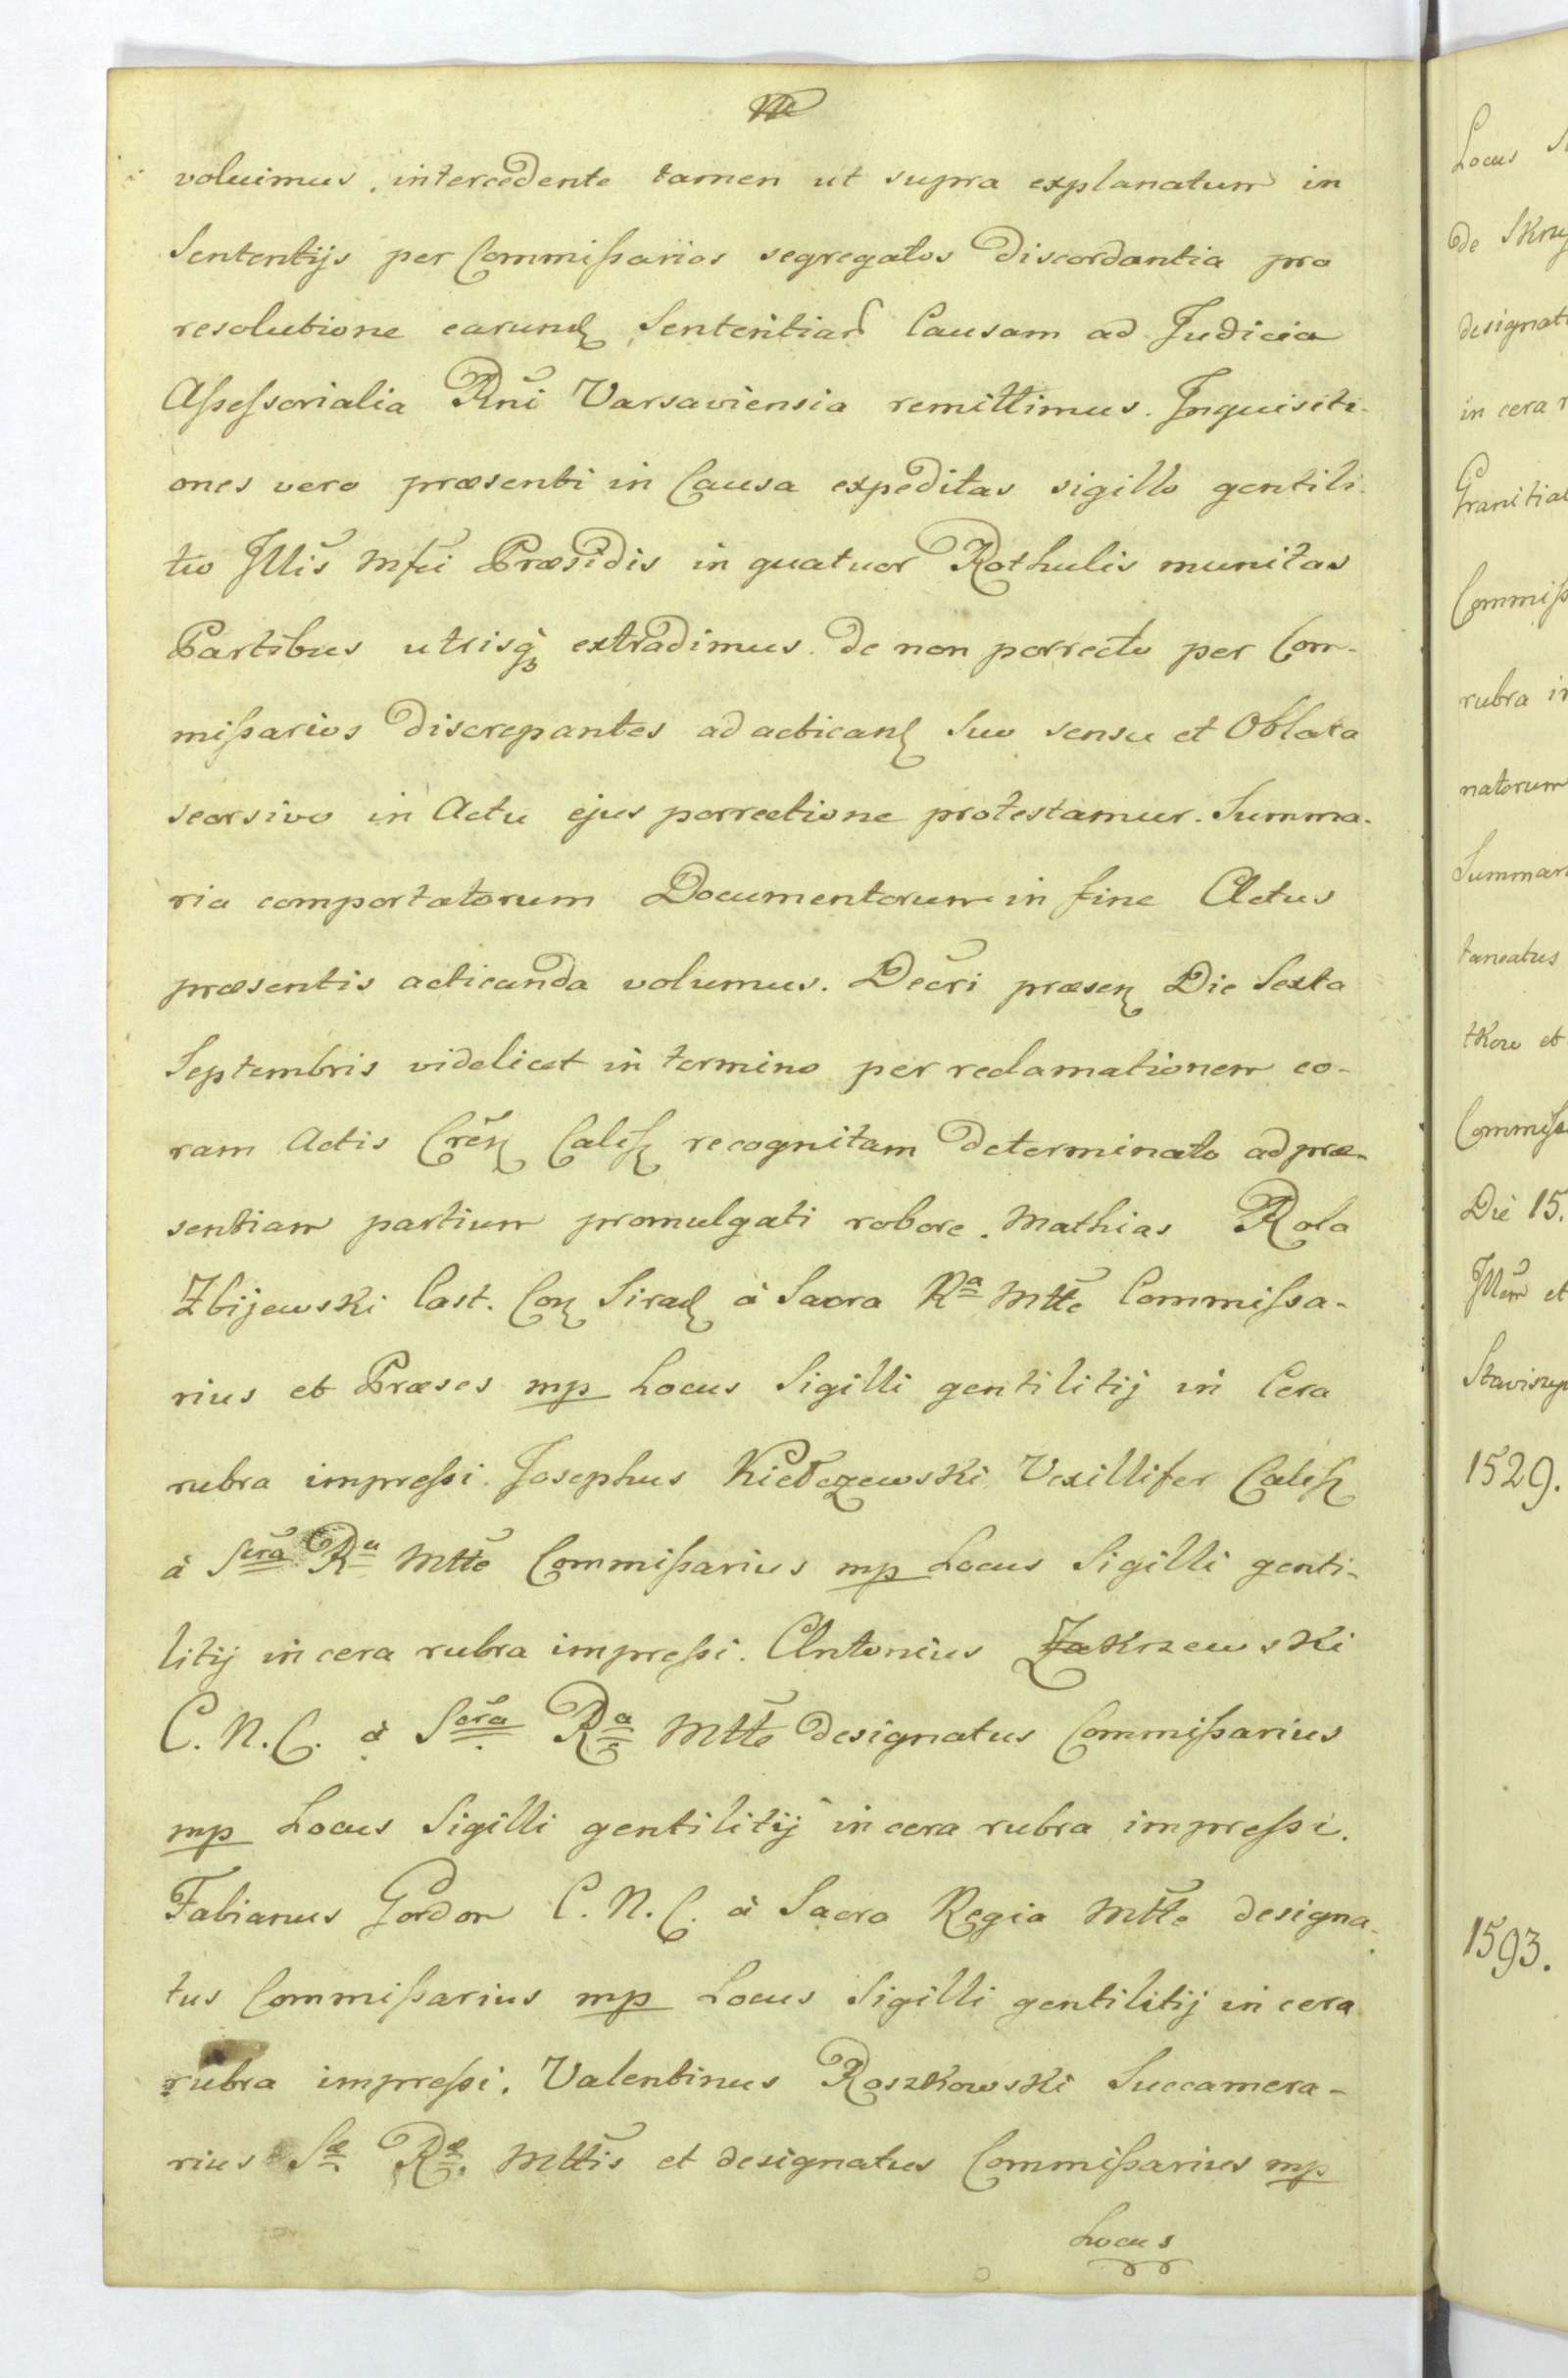 voluimus, intercedente tamen ut supra explanatum in
Sententijs per Commißarios segregatos Discordantia pro
resolutione earund Sententiar Causam ad Judicia
Aßeßorialia Rñi Varsaviensia remittimus. Inquisiti-
ones vero præsenti in Causa expeditas sigillo gentili-
tio Jllis Mfci Præsidis in quatuor Rothulis munitas
Partibus utrisq extradimus. De non porrecto per Com-
mißarios Discrepantes ad acticand suo sensu et Oblata
seorsivo in Actu ejus porrectione protestamur. Summa-
ria comportatorum Documentorum in fine Actus
præsentis acticanda volumus. Decri præsen Die Sexta
Septembris videlicet in termino per reclamationem co-
ram Actis Cren Calis recognitam Determinato ad præ-
sentiam partium promulgati robore. Mathias Rola
Zbijewski Cast. Con Sirad à Sacra Ra Mtte Commissa-
rius et Præses mp Locus Sigilli gentilitij in Cera
rubra impreßi. Josephus Kiełczewski Vexillifer Calis
à Scra Ra Mtte Commißarius mp Locus Sigilli genti-
litij in cera rubra impreßi. Antonius Zakrzewski
C. N. C. à Scra Ra Mtte Designatus Commißarius
mp Locus Sigilli gentilitij in cera rubra impreßi.
Fabianus Gordon C. N. C. à Sacra Regia Mtte designa-
tus Commißarius mp Locus Sigilli gentilitij in cera
rubra impreßi. Valentinus Roszkowski Succamera-
rius Sæ Ræ. Mttis et designatus Commißarius mp
Locus
Locus
de
designat
in cera
Granitial
Commiß
rubra
natorum
Summar
taneatus
tkow et
Commiß
Die 15.
Jllem et
1529.
1593.